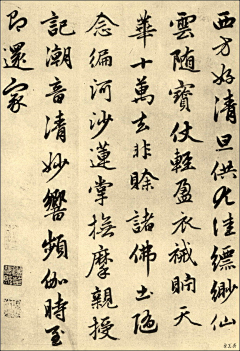 西方好清旦供尤佳縹緲仙
雲随寶仗輕盈衣裓貯天
華十萬去非賒諸佛土隨
念徧河沙蓮掌撫摩親授
記潮音清妙響頻伽時至
即還家